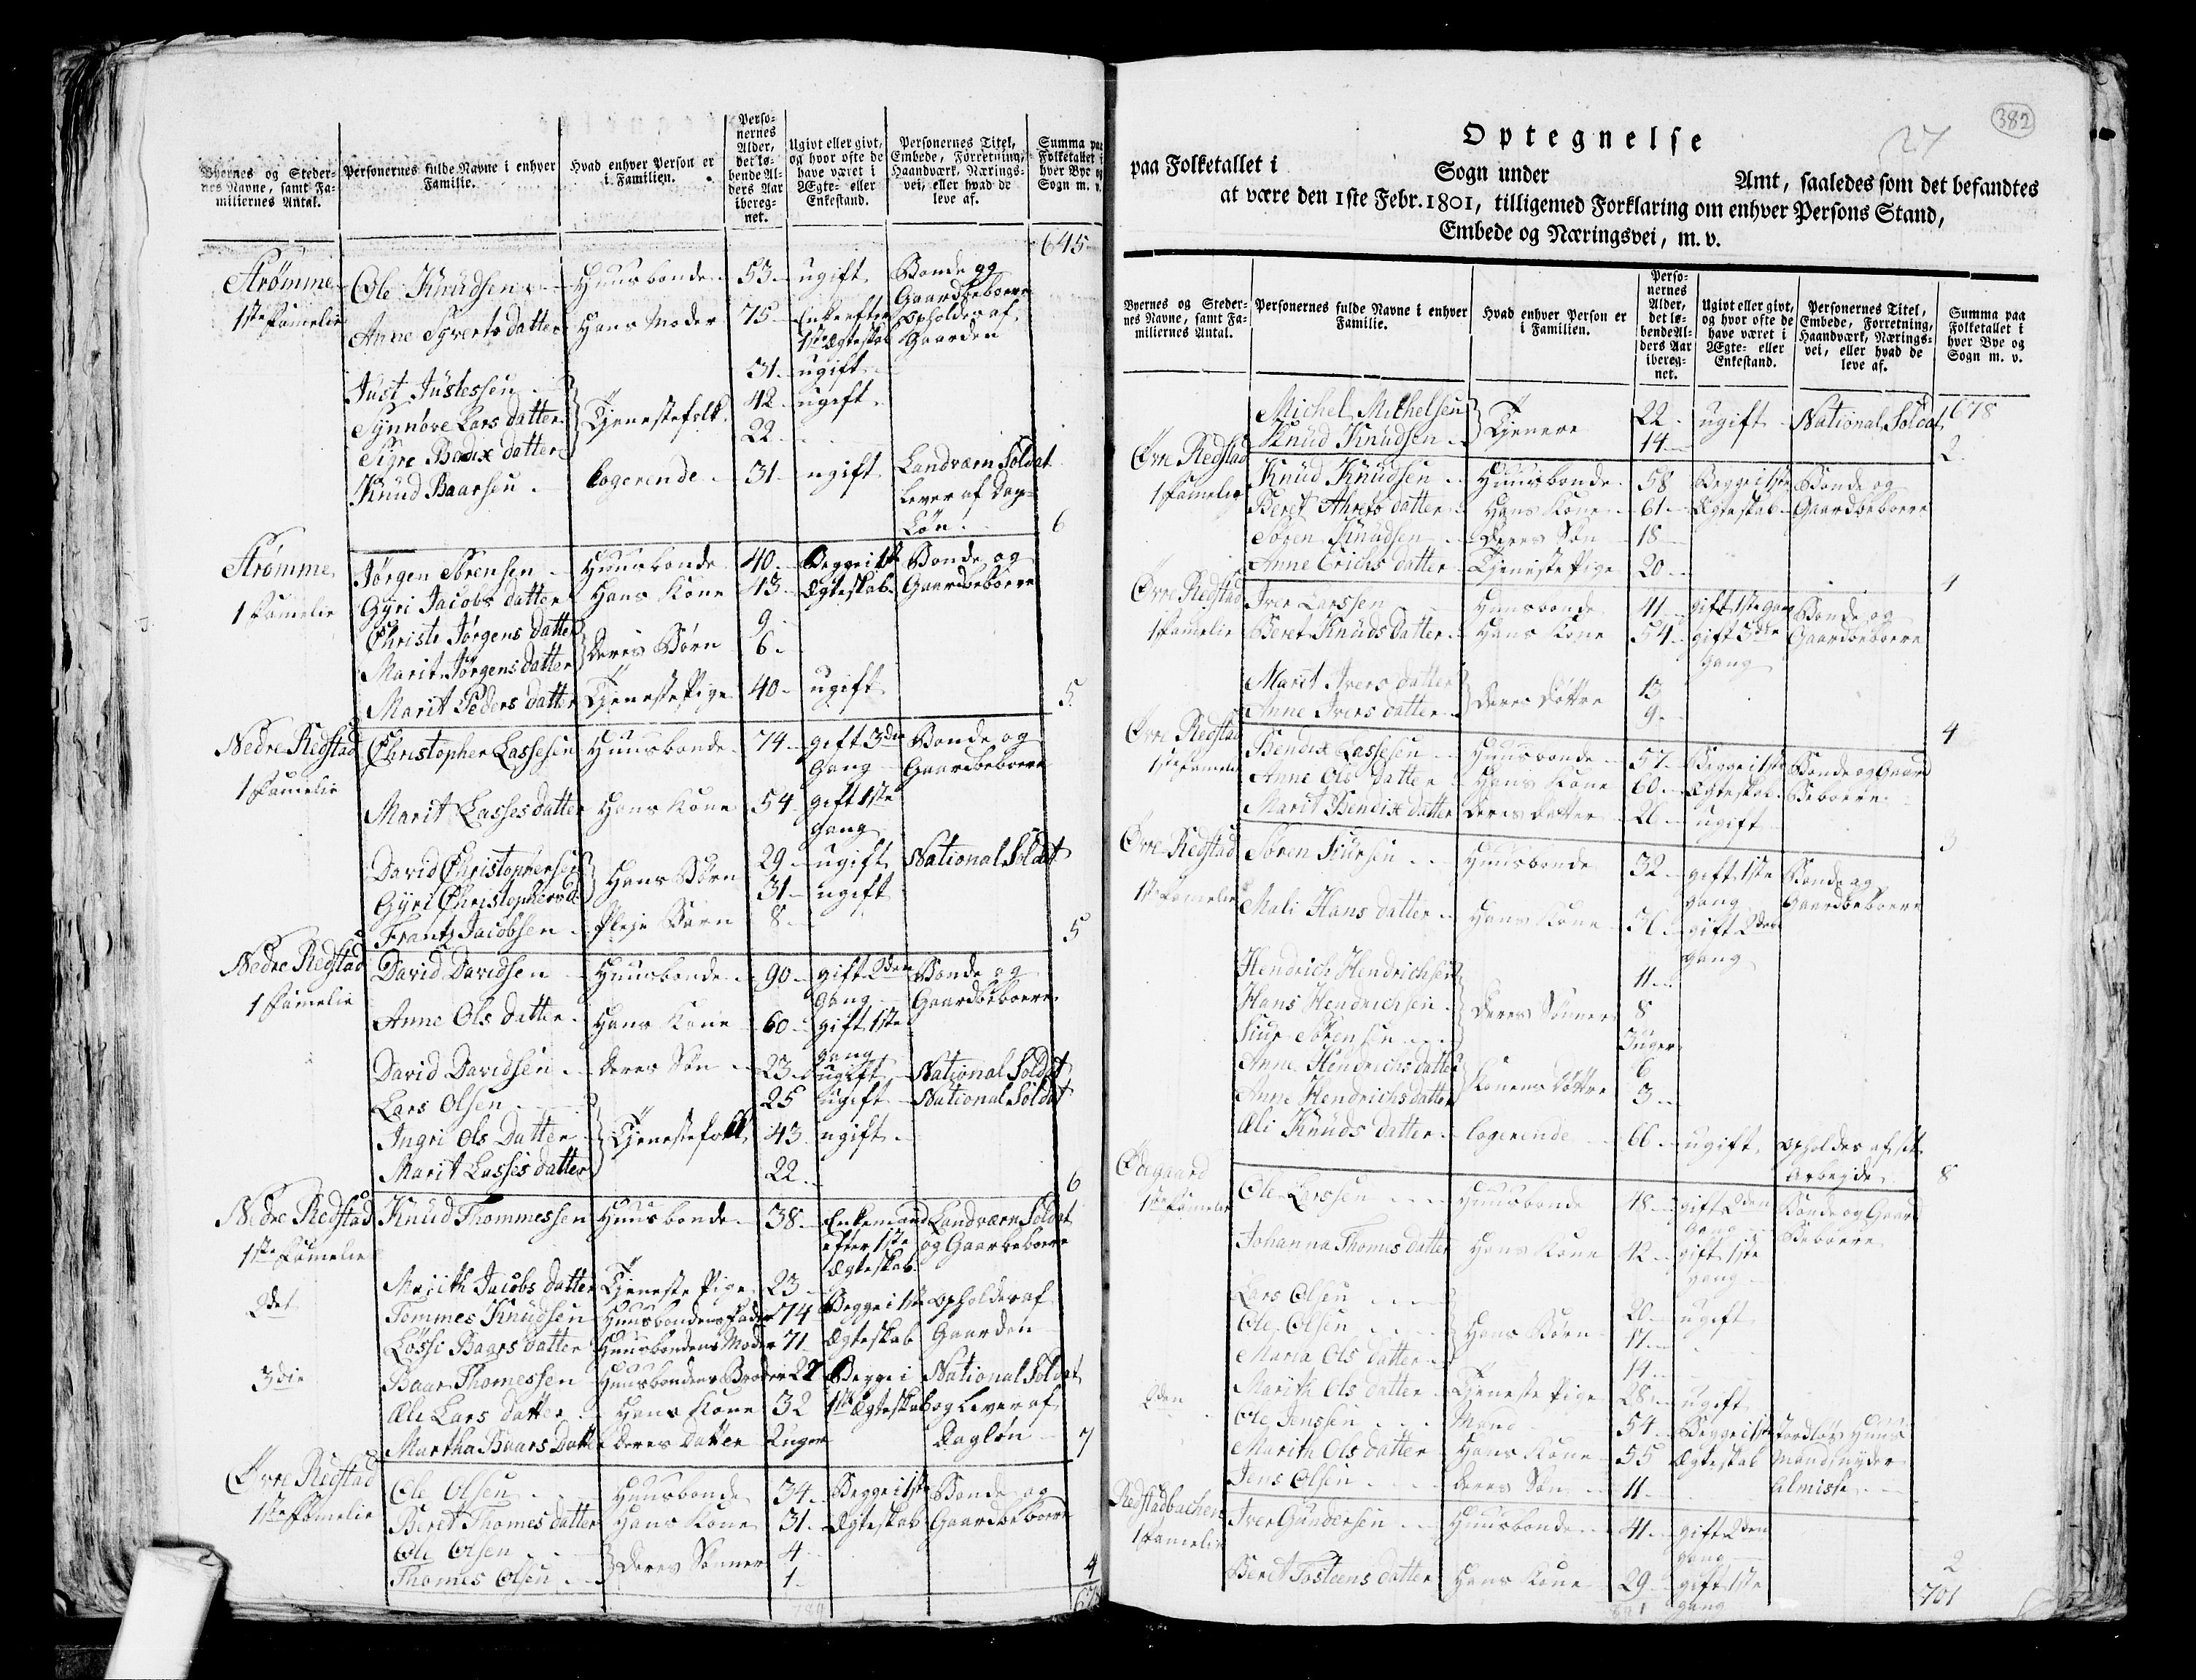 Byernes og Steder-
nes Navne, samt Fa-
miliernes Antal.
Personernes fulde Navne i enhver
Familie.
Hvad enhver Person er
i Familien.
Perso-
nernes
Alder,
det lø-
bende Al-
ders Aar
ibereg-
net.
Ugivt eller givt,
og hvor ofte de
have været i
Ægte- eller
Enkestand.
Personernes Titel,
Embede, Forretning,
Haandværk, Nærings-
vei, eller hvad de
leve af.
Summa paa
Folketallet i
hver Bye og
Sogn m. v.
645
Strømme Ole Knudsen Huusbonde 53 ugift Bonde og
Gaardbeboere
1ste Famelie Anne Syverts datter Hans Moder 75 Enke efter Opholdes af
1ste Ægteskab Gaarden
Just Justessen 31 ugift
Synnøve Lars datter Tjenestefolk 42 ugift
Sigre Bendix datter 22
Knud Baarsen logerende 31 ugift Landværn Soldat
Lever af Dag-
Løn 6
Strømme Jørgen Sørensen Huusbonde 40 Begge i 1ste Bonde og
1 Famelie Gyri Jacobs datter Hans Kone 43 Ægteskab Gaardbeboere
Christi Jørgens datter 9
Marit Jørgens datter Deres Børn 6
Marit Peders datter Tjeneste Pige 40 ugift 5
Nedre Redstad Christopher Lassesen Huusbonde 74 gift 3die Bonde og
Gang Gaardbeboere
1 Famelie Marit Lasses datter Hans Kone 54 gift 1ste
gang
David Christophersen 29 ugift National Soldat
Gyri Christophersd. Hans Børn 31 ugift
Frantz Jacobsen Pleje Barn 8 5
Nedre Redstad David Davidsen Huusbonde 90 gift 2den Bonde og
1 Famelie gang Gaardbeboere
Anne Ols datter Hans Kone 60 gift 1ste
gang
David Davidsen Deres Søn 23 ugift National Soldat
Lars Olsen 25 ugift National Soldat
Ingri Ols Datter Tjenestefolk 43 ugift
Marit Lasses datter 22 6
Nedre Redstad Knud Thommessen Huusbonde 38 Enkemand Landværn Soldat
1ste Famelie efter 1ste og Gaarbeboere
Ægteskab
Marith Jacobs datter Tjeneste Pige 23
2det Tommes Knudsen Huusbondens Fader 74 Begge i 1ste Opholdes af
Lossi Baars datter Huusbondens Moder 71 Ægteskab Gaarden
3die Baar Thomessen Huusbondens Broder 22 Begge i National Soldat
Æli Lars datter Hans Kone 32 1ste Ægteskab og Lever af
Martha Baars Datter Deres Datter 2 uger Dagløn 7
Øvre Redstad Ole Olsen Huusbonde 34 Begge i 1ste Bonde og
1ste Famelie Beret Thomes datter Hans Kone 31 Ægteskab Gaardbeboere
Ole Olsen 4
Thomes Olsen Deres Sønner 1 4
678
382
Optegnelse
paa Folketallet i Sogn under Amt, saaledes som det befandtes
at være den 1ste Febr. 1801, tilligemed Forklaring om enhver Persons Stand,
Embede og Næringsvei, m. v.
Byernes og Steder-
nes Navne, samt Fa-
miliernes Antal.
Personernes fulde Navne i enhver
Familie.
Hvad enhver Person er
i Familien.
Perso-
nernes
Alder,
det lø-
bende Al-
ders Aar
ibereg-
net.
Ugivt eller givt,
og hvor ofte de
have været i
Ægte- eller
Enkestand.
Personernes Titel,
Embede, Forretning,
Haandværk, Nærings-
vei, eller hvad de
leve af.
Summa paa
Folketallet i
hver Bye og
Sogn m. v.
Michel Michelsen 22 ugift National Soldat 678
Knud Knudsen Tjenere 14 2
Øvre Redstad Knud Knudsen Huusbonde 58 Begge i 1ste Bonde og
1 Famelie Beret Ahrets datter Hans Kone 61 Ægteskab Gaardbeboere
Søren Knudsen Deres Søn 18
Anne Erichs datter Tjeneste Pige 20 4
Øvre Redstad Iver Larssen Huusbonde 41 gift 1ste gang Bonde og
1 Famelie Beret Knuds Datter Hans Kone 54 gift 3die Gaardbeboere
gang
Marit Ivers datter 13
Anne Ivers datter Deres Døttre 9 4
Øvre Redstad Bendix Lassesen Huusbonde 57 Begge i 1ste Bonde og Gaard
1ste Famelie Anne Ols datter Hans Kone 60 Ægteskab Beboere
Marit Bendix datter Deres Datter 26 ugift 3
Øvre Redstad Søren Siursen Huusbonde 32 gift 1ste Bonde og
gang Gaardbeboere
1ste Famelie Mali Hans datter Hans Kone gift 2den
gang
Hendrich Hendrichsen 11
Hans Hendrichsen Deres Sønner 8
Siur Sørensen 3 uger
Anne Hendrichs datter 6
Anne Hendrichsdatter Konens Døttre 3
Æli Knuds datter logerende 66 ugift Opholdes af sit
Arbejde 8
Ødegaard Ole Larssen Huusbonde 48 gift 2den Bonde og Gaard
1ste Famelie gang Beboere
Johanna Thomes datter Hans Kone 42 gift 1ste
gang
Lars Olsen 20 ugift
Ole Olsen Hans Børn 17
Maria Ols datter 14
Marith Ols datter Tjeneste Pige 28 ugift
2den Ole Jenssen Mand 54 Begge i 1ste Jordløs Huus
Marith Ols datter Hans Kone 55 Ægteskab mand nyder
Jens Olsen Deres Søn 11 Almisse
Redstadbachen Iver Gundersen Huusbonde 41 gift 2den
1 Famelie gang
Berit Tosteens datter Hans Kone 29 gift 1ste 2
gang 701